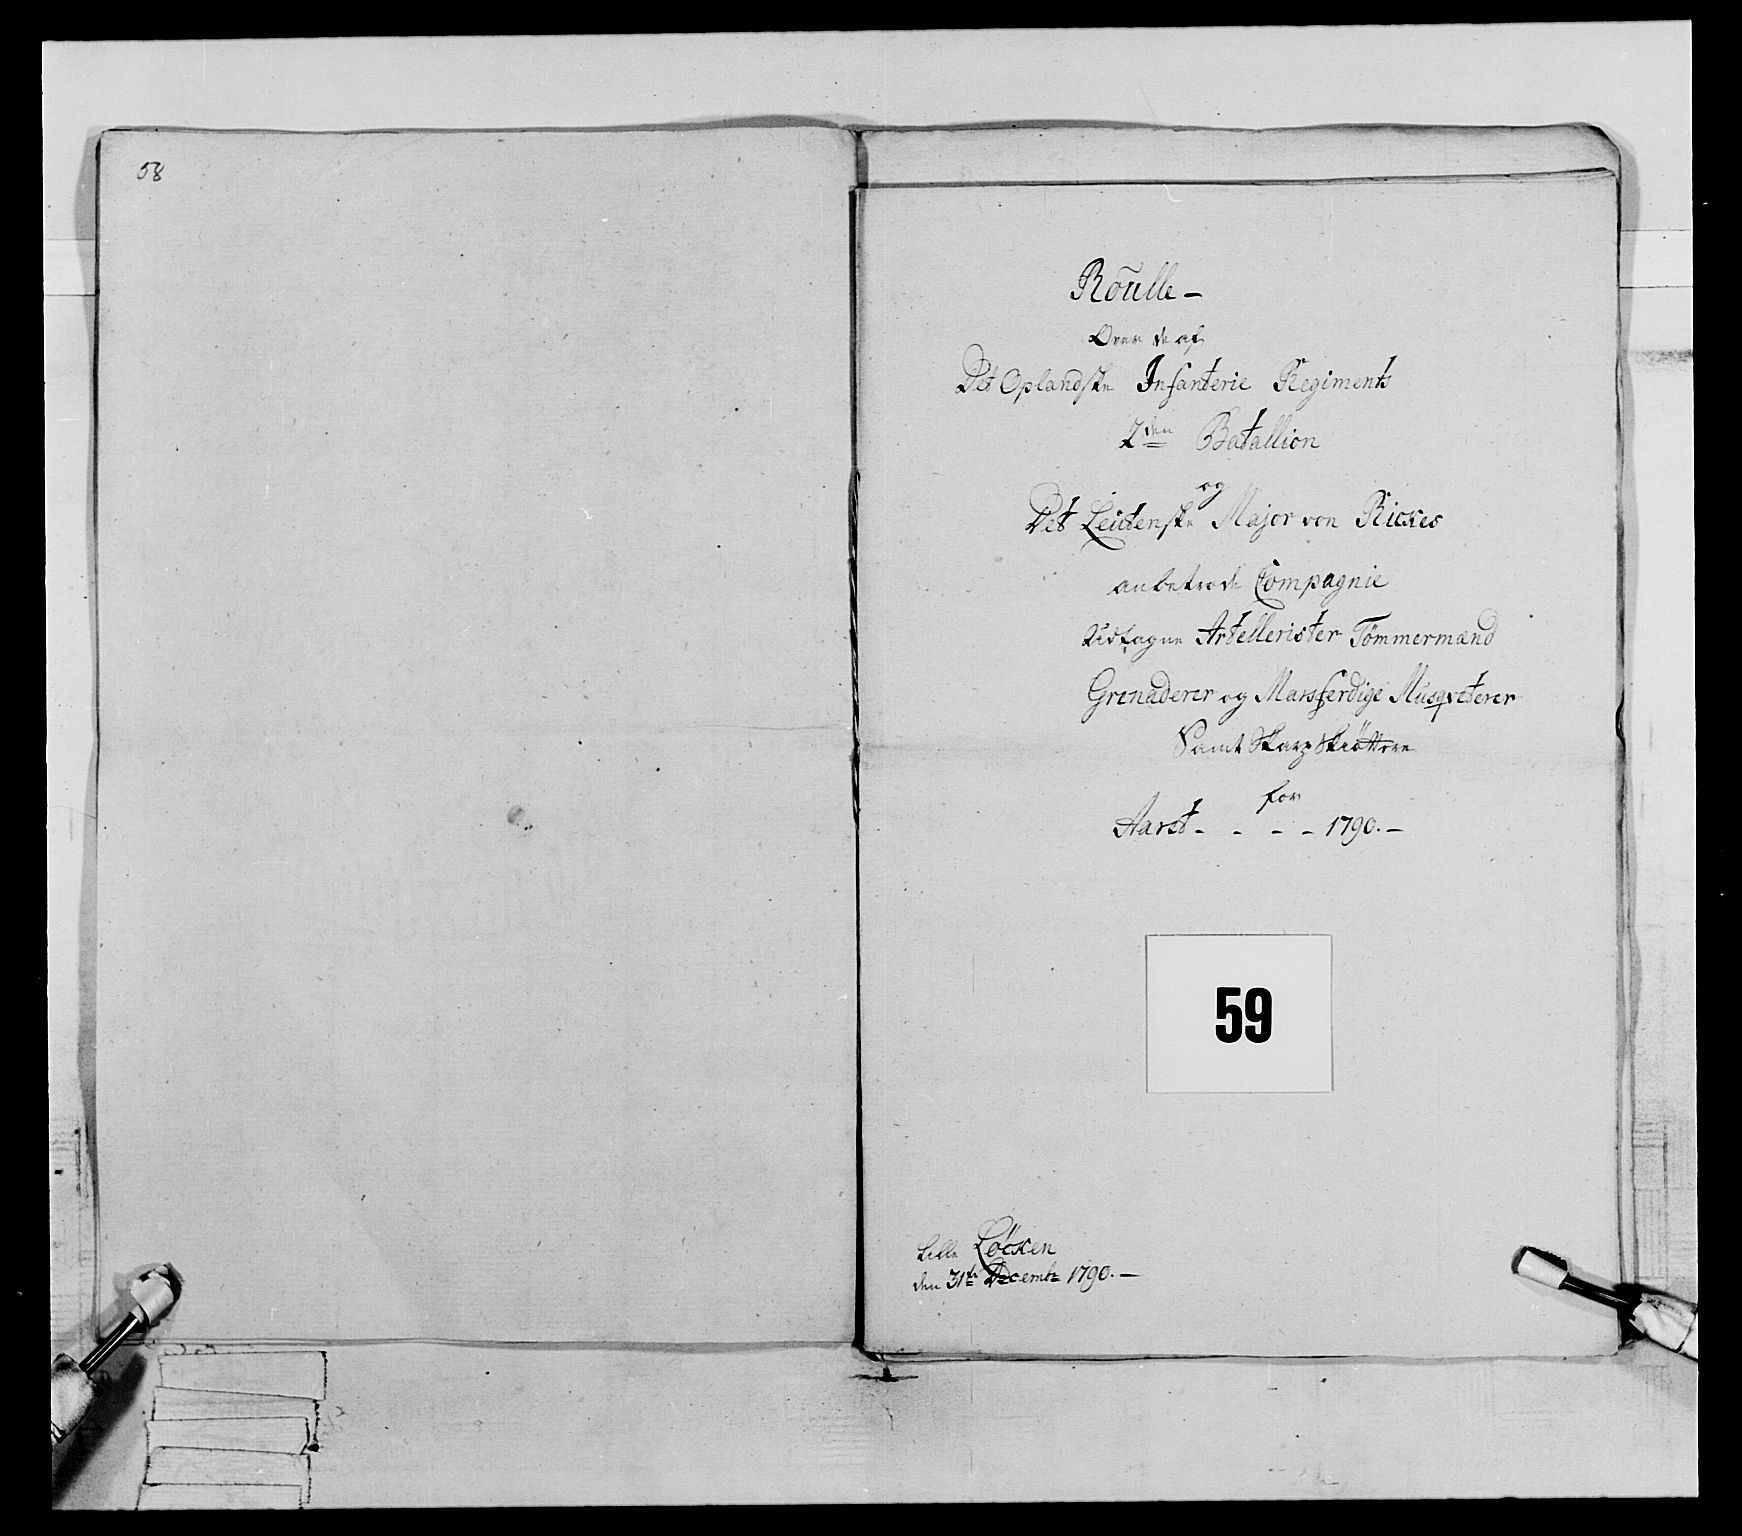 58
Roulle –
Over de af
Det Oplandske Infanterie Regiments
2den Batallion
og
Det Leutenske Major von Rickes
anbetrode Compagnie
Udtagne Artellerister Tömmermænd
Grenaderer og Marsferdige Musqveterer
Samt Skarp Skiöttere
for
Aaret - - - - 1790. –
59
Lille Löcken
den 31te Decembr 1790. –